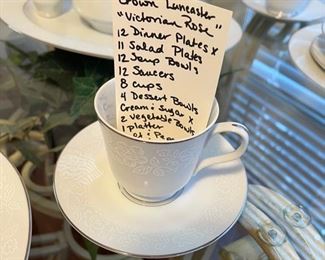 Crown Lancaster
"Victorian Rose"
12 Dinner Plates X
11 Salad Plates
12 Soup Bowls
12 Saucers
8 cups
4 Dessert Bowls
Cream & Sugar X
2 Vegetable Bowls
1 platter